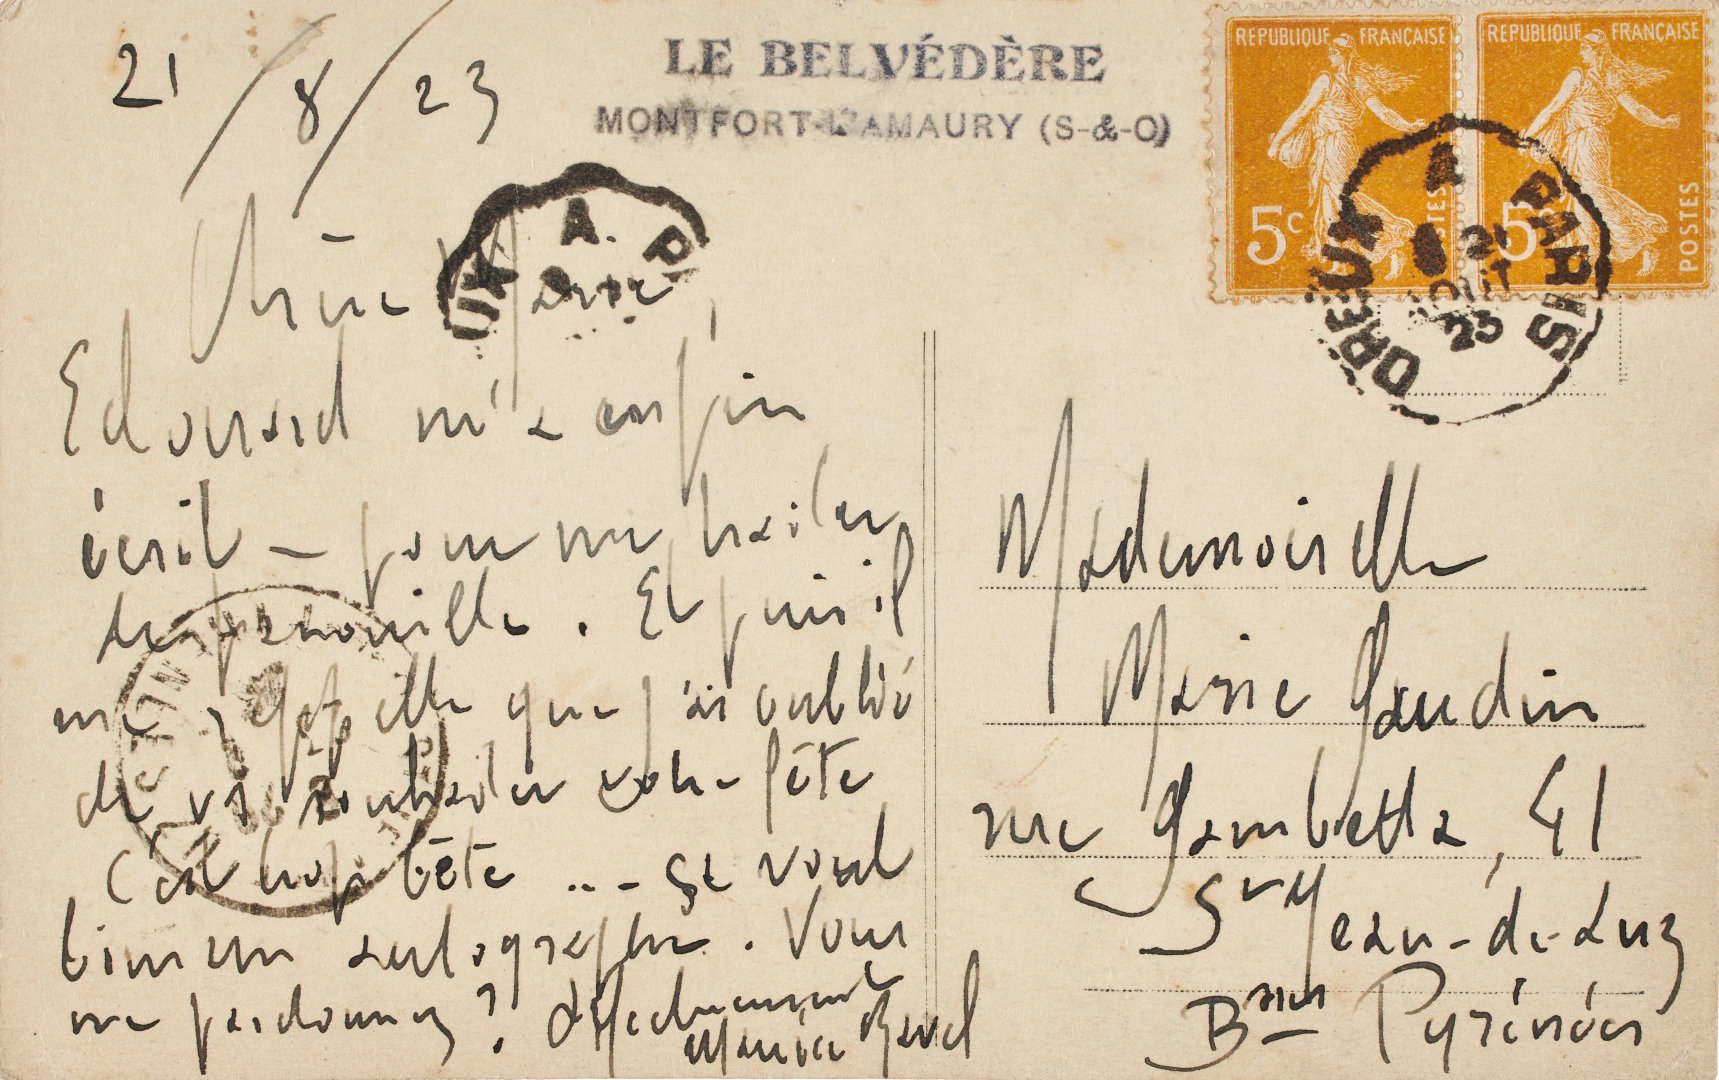 21/8/23
LE BELVÉDÈRE
MONTFORT-L'AMAURY (S-&-O)
REPUBLIQUE FRANÇAISE
5c
POSTES
REPUBLIQUE FRANÇAISE
5c
POSTES
DREUX A PARIS
21
AOUT
23
UX A. P
Chère Marie,
Edouard m'a enfin
écrit – pour me traiter
de fripouille. Et puis il
me rappelle que j'ai oublié
de vs souhaiter votre fête
C'est trop bête ... ça vaut
bien un autographe. Vous
me pardonnez? Affectueusement
Maurice Ravel
Mademoiselle
Marie Gaudin
rue Gambetta, 41
St Jean-de-Luz
Bsses Pyrénées